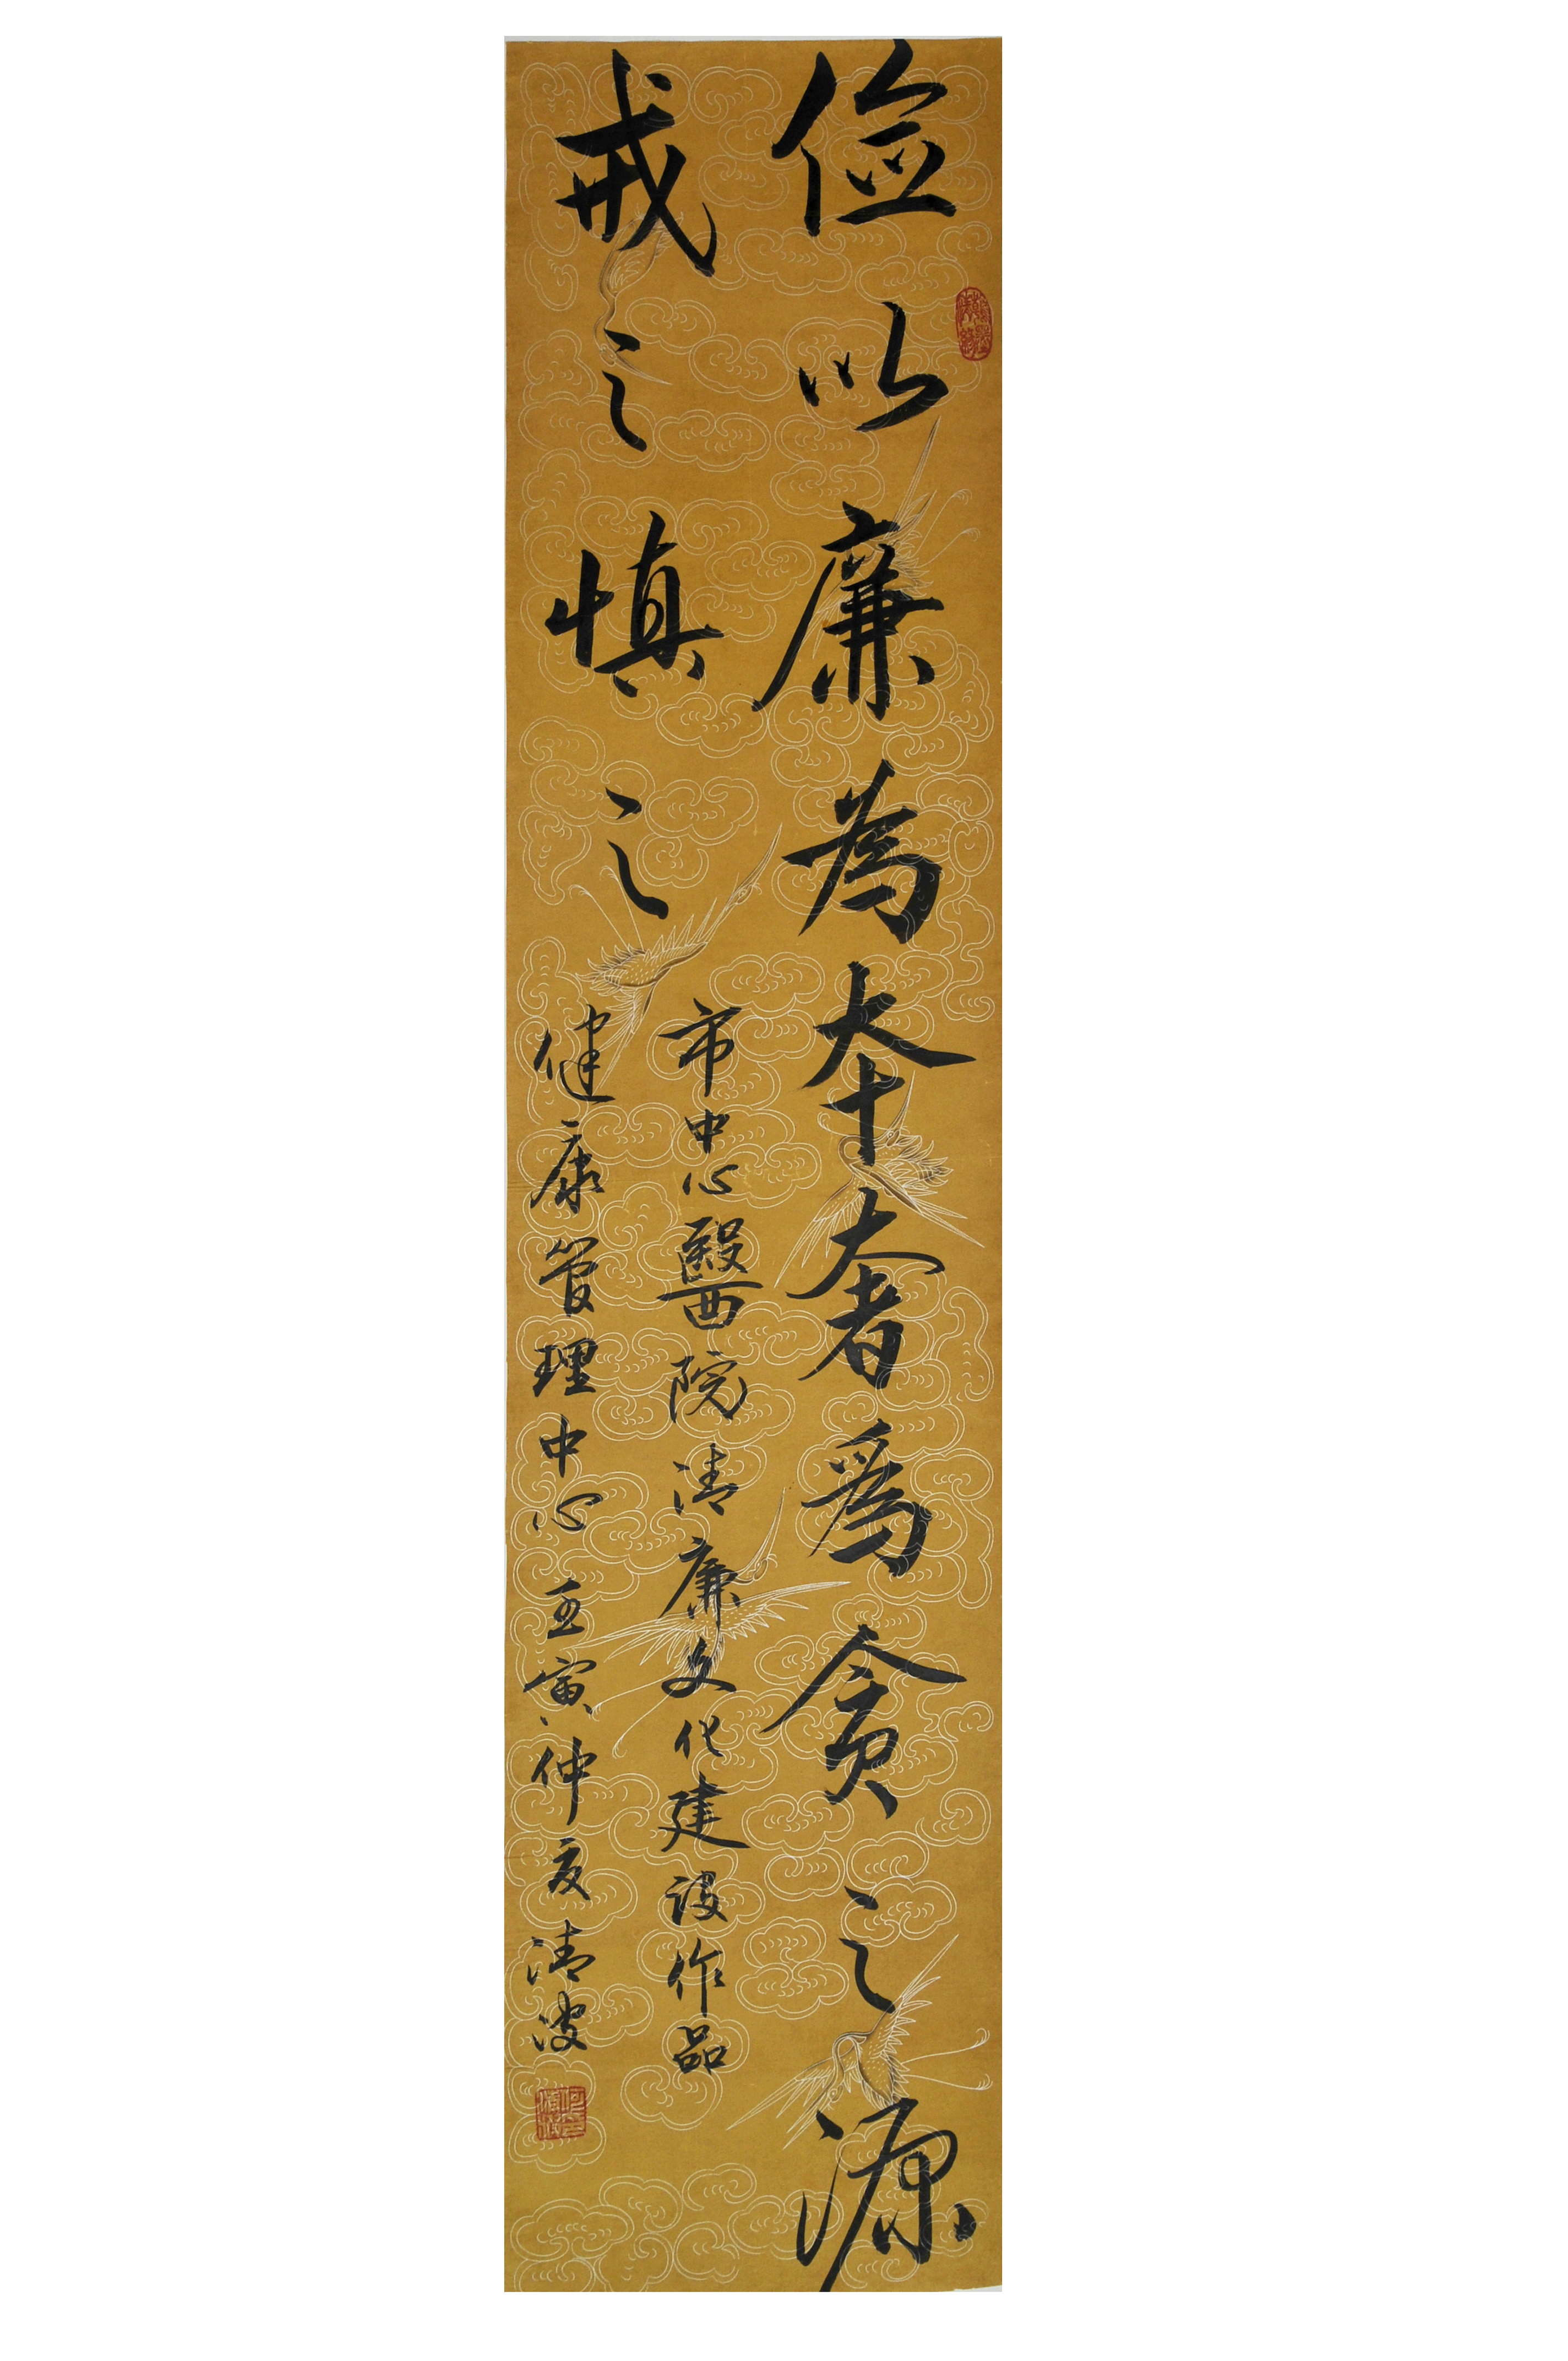 儉以廉為本奢為貪之源
戒之慎之
市中心醫院清廉文化建设作品
健康管理中心 壬寅仲夏清波